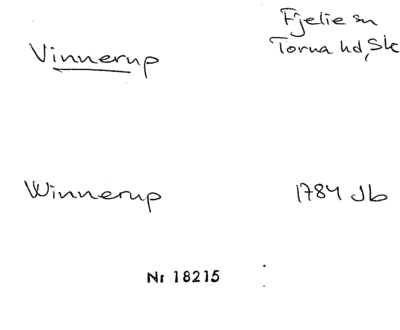 Fjelie sn
Vinnerup
Torna hd, Sk
Winnerup
1784 Jb
Nr 18215